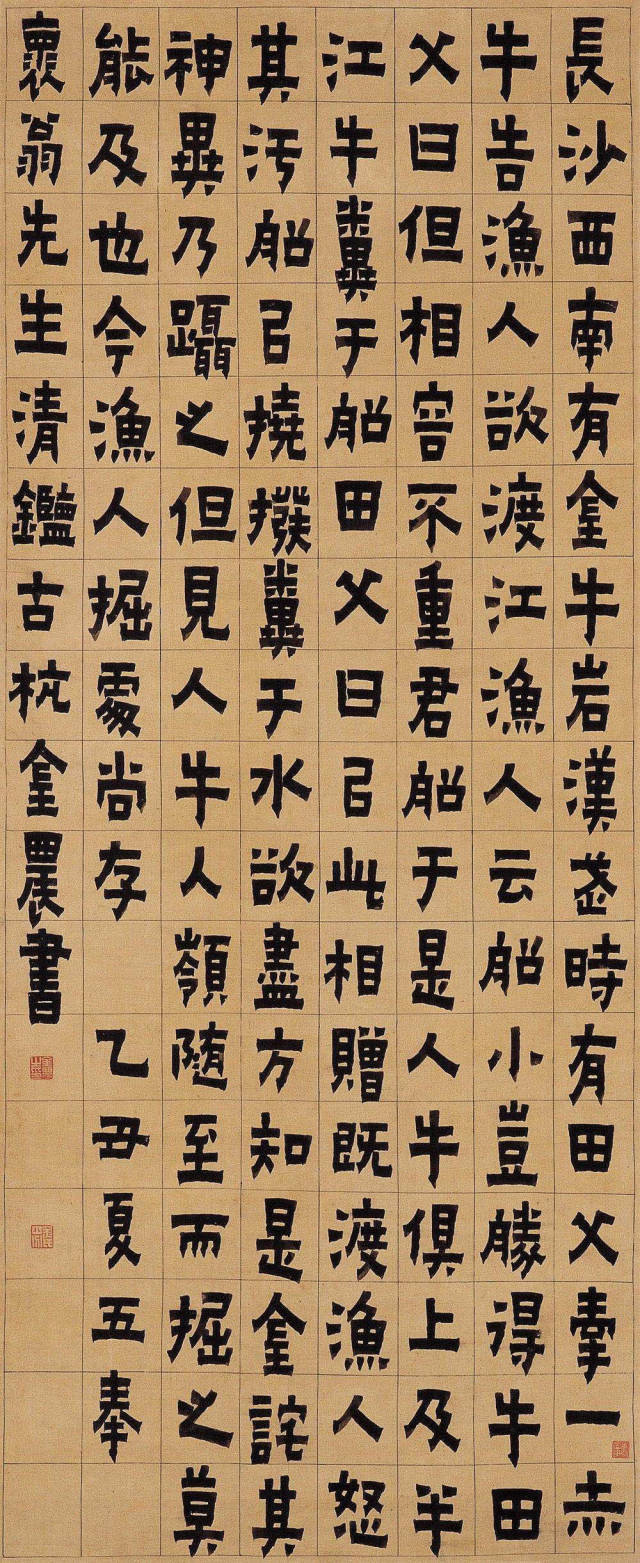 長沙西南有金牛岩漢武時有田父牽一赤
牛告漁人欲渡江漁人云船小豈勝得牛田
父曰但相容不重君船于是人牛俱上及半
江牛糞于船田父曰以此相贈既渡漁人怒
其污船以撓撥糞于水欲盡方知是金詫其
神異乃躡之但見人牛入嶺隨至而掘之莫
能及也今漁人掘處尚存 乙丑夏五奉
褱翁先生清鑑古杭金農書